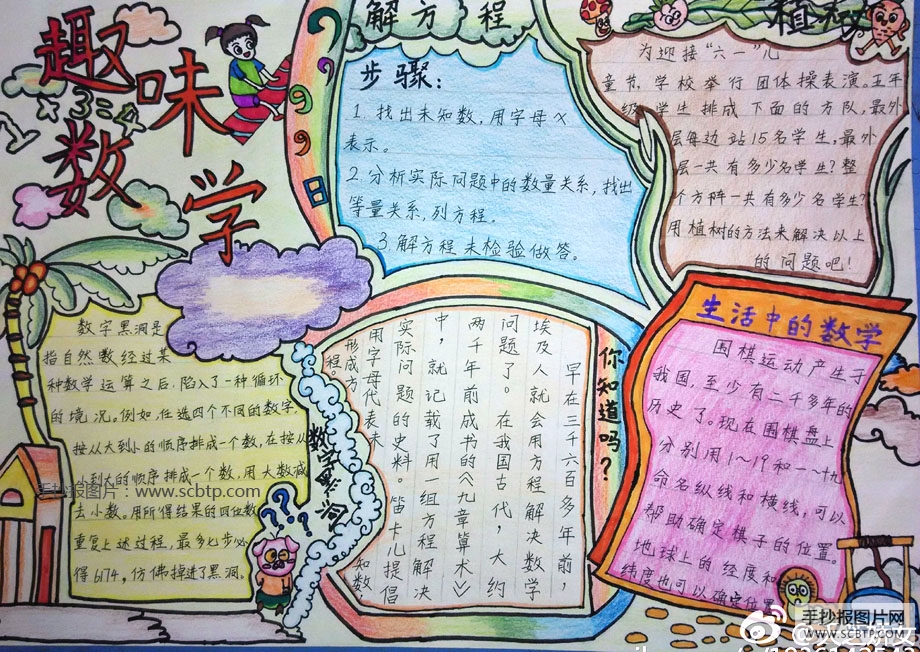 趣味
数学
解方程
步骤：
1. 找出未知数，用字母x
表示。
2. 分析实际问题中的数量关系，找出
等量关系，列方程。
3. 解方程未检验做答。
植树
为迎接“六一”儿
童节，学校举行团体操表演。五年
级学生排成下面的方队，最外
层每边站15名学生，最外
层一共有多少名学生？整
个方阵一共有多少名学生？
用植树的方法来解决以上
的问题吧！
数字黑洞是
指自然数经过某
种数学运算之后，陷入了一种循环
的境况。例如，任选四个不同的数字，
按从大到小的顺序排成一个数，在按从
小到大的顺序排成一个数，用大数减
去小数。用所得结果的四位数
重复上述过程，最多七步必
得6174，仿佛掉进了黑洞。
数字黑洞
???
你知道吗？
早在三千六百多年前，
埃及人就会用方程解决数学
问题了。在我国古代，大约
两千年前成书的《九章算术》
中，就记载了用一组方程解决
实际问题的史料。笛卡儿提倡
用字母代表未知数
形成方程。
生活中的数学
围棋运动产生于
我国，至少有二千多年的
历史了。现在围棋盘上
分别用1～19和一～十九
命名纵线和横线，可以
帮助确定棋子的位置。
地球上的经度和
纬度也可以确定位置
手抄报图片：www.scbtp.com
手抄报图片网
WWW.SCBTP.COM